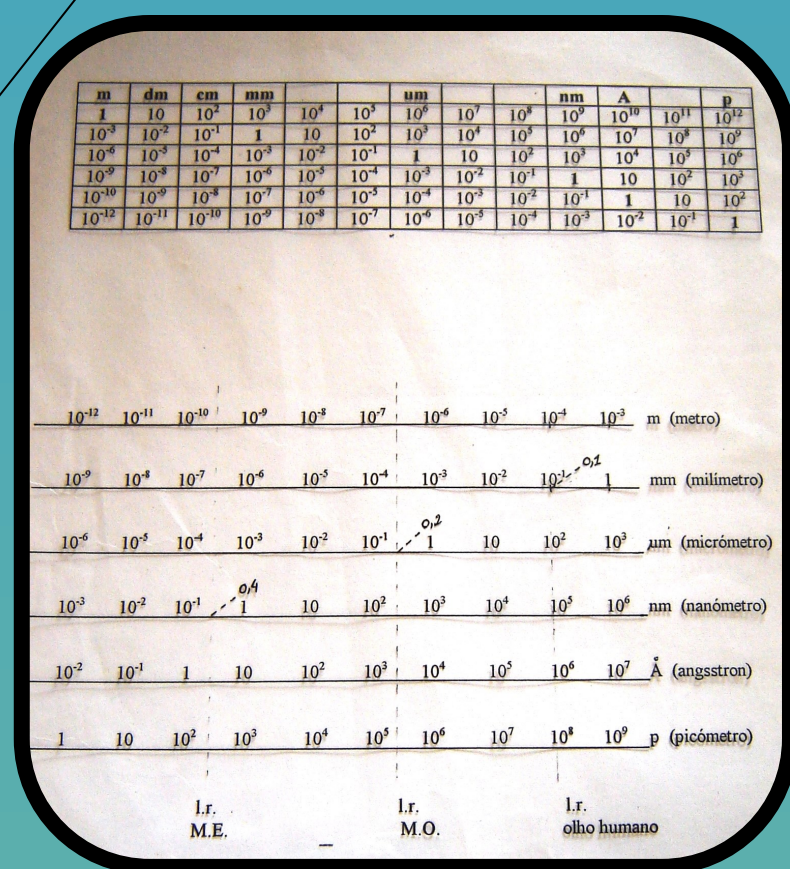 m dm cm mm um nm A p
1 10 10² 10³ 10⁴ 10⁵ 10⁶ 10⁷ 10⁸ 10⁹ 10¹⁰ 10¹¹ 10¹²
10⁻³ 10⁻² 10⁻¹ 1 10 10² 10³ 10⁴ 10⁵ 10⁶ 10⁷ 10⁸ 10⁹
10⁻⁶ 10⁻⁵ 10⁻⁴ 10⁻³ 10⁻² 10⁻¹ 1 10 10² 10³ 10⁴ 10⁵ 10⁶
10⁻⁹ 10⁻⁸ 10⁻⁷ 10⁻⁶ 10⁻⁵ 10⁻⁴ 10⁻³ 10⁻² 10⁻¹ 1 10 10² 10³
10⁻¹⁰ 10⁻⁹ 10⁻⁸ 10⁻⁷ 10⁻⁶ 10⁻⁵ 10⁻⁴ 10⁻³ 10⁻² 10⁻¹ 1 10 10²
10⁻¹² 10⁻¹¹ 10⁻¹⁰ 10⁻⁹ 10⁻⁸ 10⁻⁷ 10⁻⁶ 10⁻⁵ 10⁻⁴ 10⁻³ 10⁻² 10⁻¹ 1
10⁻¹² 10⁻¹¹ 10⁻¹⁰ 10⁻⁹ 10⁻⁸ 10⁻⁷ 10⁻⁶ 10⁻⁵ 10⁻⁴ 10⁻³ m (metro)
0,1
10⁻⁹ 10⁻⁸ 10⁻⁷ 10⁻⁶ 10⁻⁵ 10⁻⁴ 10⁻³ 10⁻² 10⁻¹ 1 mm (milímetro)
0,2
10⁻⁶ 10⁻⁵ 10⁻⁴ 10⁻³ 10⁻² 10⁻¹ 1 10 10² 10³ µm (micrómetro)
0,4
10⁻³ 10⁻² 10⁻¹ 1 10 10² 10³ 10⁴ 10⁵ 10⁶ nm (nanómetro)
10⁻² 10⁻¹ 1 10 10² 10³ 10⁴ 10⁵ 10⁶ 10⁷ Å (angsstron)
1 10 10² 10³ 10⁴ 10⁵ 10⁶ 10⁷ 10⁸ 10⁹ p (picómetro)
l.r. l.r. l.r.
M.E. M.O. olho humano